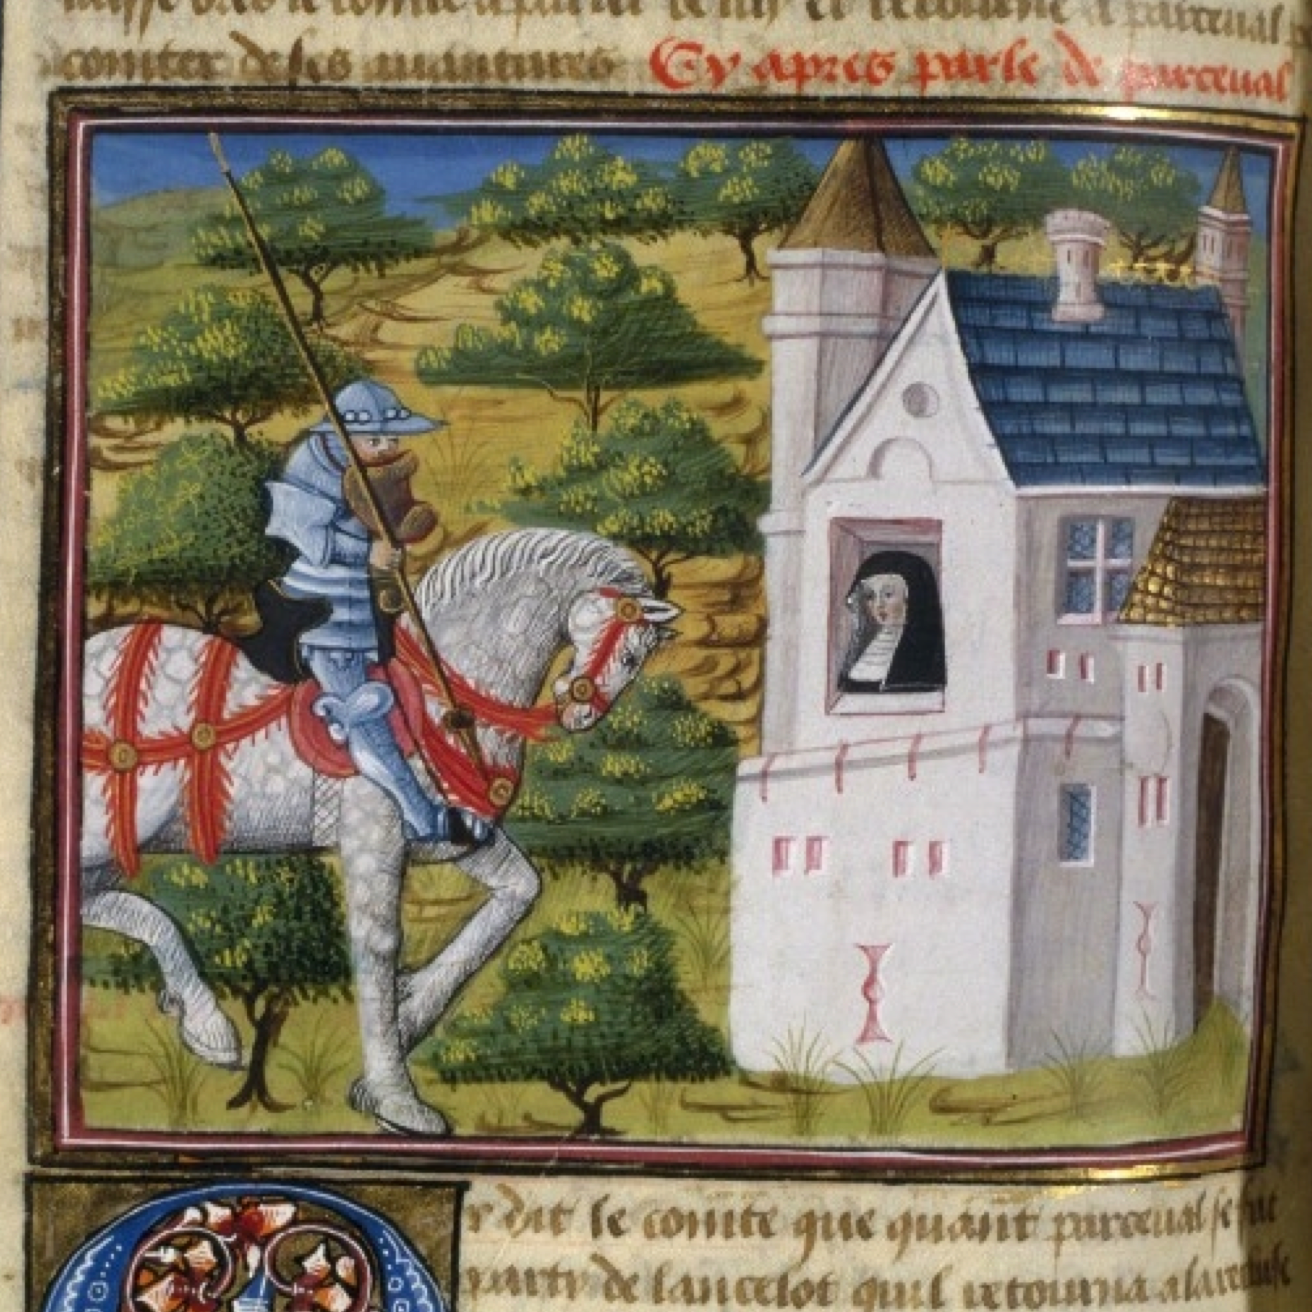 le comte a parler de luy et retourne a parceual
compter de ses auantures Cy apres parle de parceual
r dit le compte que quant parceual se fut
party de lancelot quil retourna a la recluse